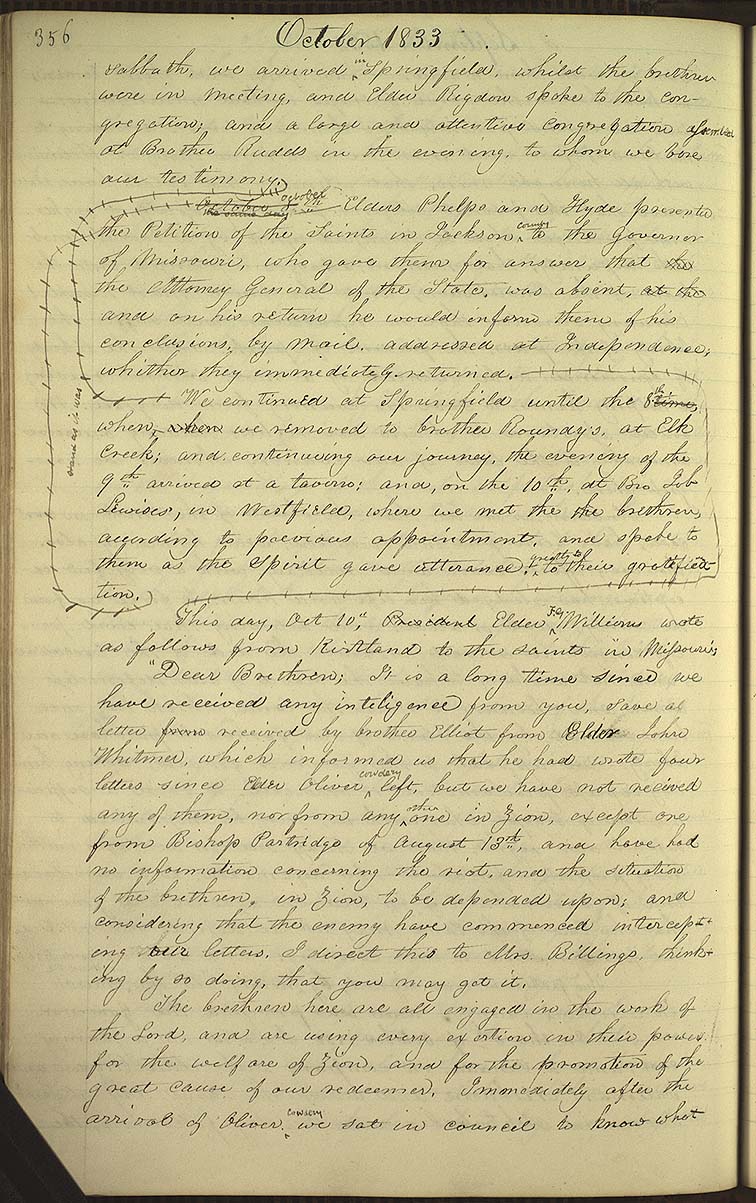 356
October 1833.
sabbath, we arrived in Springfield, whilst the brethren
were in meeting, and Elder Rigdon spoke to the con-
gregation; and a large and attentive congregation assembled
at Brother Rudds in the evening, to whom we bore
our testimony.
October the same day october Elders Phelps and Hyde presented
the Petition of the Saints in Jackson county to the Governor
of Missouri, who gave them for answer that the
the Attorney General of the State, was absent, at the
and on his return he would inform them of his
conclusions, by mail, addressed at Independence;
whither they immediately returned.
We continued at Springfield until the 8th time,
when, when we removed to brother Roundy's, at Elk
Creek; and continueing our journey, the evening of the
9th arrived at a tavern; and, on the 10th, at Bro Job
Lewises, in Westfield, where we met the the brethren,
according to previous appointment, and spoke to
them as the Spirit gave utterance. greatly to to their gratifica-
tion.)
same as it was
This day, Oct 10th, President Elder F.G. Williams wrote
as follows from Kirtland to the saints in Missouri;
"Dear Brethren; It is a long time since we
have received any inteligence from you, save a
letter from received by brother Elliot from Elder John
Whitmer, which informed us that he had wrote four
letters since Elder Oliver cowdery left, but we have not received
any of them, nor from any other one in Zion, except one
from Bishop Partridge of August 13th, and have had
no information concerning the riot, and the situation
of the brethren, in Zion, to be depended upon; and
considering that the enemy have commenced intercept-
ing our letters, I direct this to Mrs. Billings, think-
ing by so doing, that you may get it.
The brethren here are all engaged in the work of
the Lord, and are using every exertion in their power
for the welfare of Zion, and for the promotion of the
great cause of our redeemer. Immediately after the
arrival of Oliver cowdery we sat in council to know what